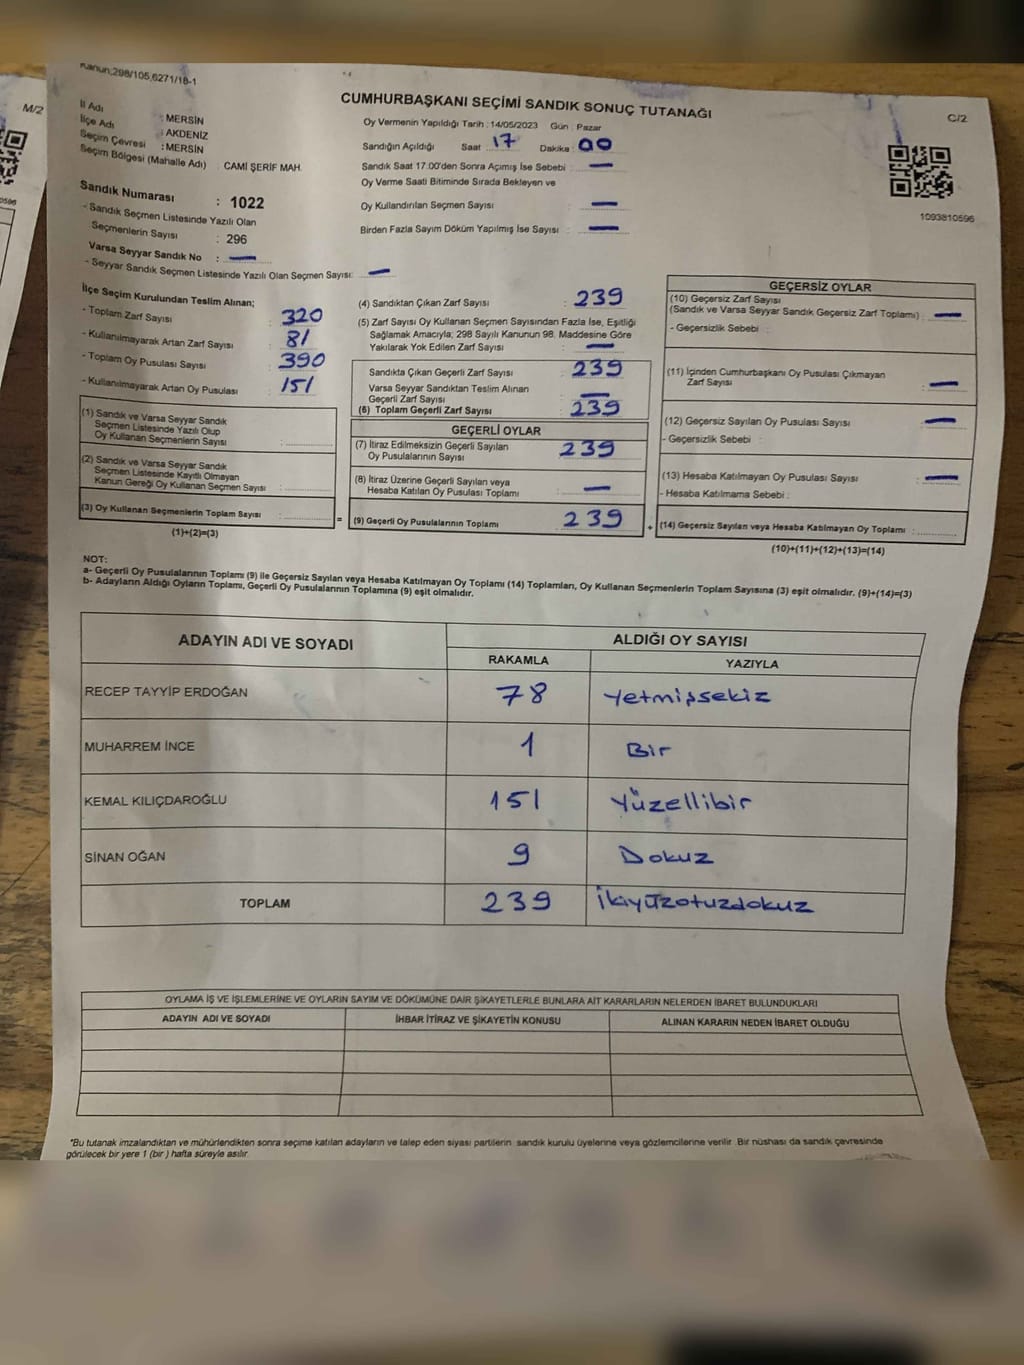 Kanun;298/105,6271/18-1
M/2
C/2
CUMHURBAŞKANI SEÇİMİ SANDIK SONUÇ TUTANAĞI
İl Adı : MERSİN
İlçe Adı : AKDENİZ
Seçim Çevresi : MERSİN
Seçim Bölgesi (Mahalle Adı) CAMİ ŞERİF MAH.
Sandık Numarası : 1022
- Sandık Seçmen Listesinde Yazılı Olan
Seçmenlerin Sayısı : 296
Varsa Seyyar Sandık No : —
- Seyyar Sandık Seçmen Listesinde Yazılı Olan Seçmen Sayısı: —
Oy Vermenin Yapıldığı Tarih : 14/05/2023 Gün : Pazar
Sandığın Açıldığı Saat 17 Dakika : 00
Sandık Saat 17.00'den Sonra Açımış İse Sebebi : —
Oy Verme Saati Bitiminde Sırada Bekleyen ve
Oy Kullandırılan Seçmen Sayısı : —
Birden Fazla Sayım Döküm Yapılmış İse Sayısı : —
1093810596
İlçe Seçim Kurulundan Teslim Alınan;
- Toplam Zarf Sayısı : 320
- Kullanılmayarak Artan Zarf Sayısı : 81
- Toplam Oy Pusulası Sayısı : 390
- Kullanılmayarak Artan Oy Pusulası : 151
(1) Sandık ve Varsa Seyyar Sandık
Seçmen Listesinde Yazılı Olup
Oy Kullanan Seçmenlerin Sayısı :
(2) Sandık ve Varsa Seyyar Sandık
Seçmen Listesinde Kayıtlı Olmayan
Kanun Gereği Oy Kullanan Seçmen Sayısı :
(3) Oy Kullanan Seçmenlerin Toplam Sayısı : =
(1)+(2)=(3)
(4) Sandıktan Çıkan Zarf Sayısı : 239
(5) Zarf Sayısı Oy Kullanan Seçmen Sayısından Fazla İse, Eşitliği
Sağlamak Amacıyla; 298 Sayılı Kanunun 98. Maddesine Göre
Yakılarak Yok Edilen Zarf Sayısı : —
Sandıkta Çıkan Geçerli Zarf Sayısı : 239
Varsa Seyyar Sandıktan Teslim Alınan
Geçerli Zarf Sayısı : —
(6) Toplam Geçerli Zarf Sayısı : 239
GEÇERLİ OYLAR
(7) İtiraz Edilmeksizin Geçerli Sayılan
Oy Pusulalarının Sayısı : 239
(8) İtiraz Üzerine Geçerli Sayılan veya
Hesaba Katılan Oy Pusulası Toplamı : —
(9) Geçerli Oy Pusulalarının Toplamı : 239 +
GEÇERSİZ OYLAR
(10) Geçersiz Zarf Sayısı
(Sandık ve Varsa Seyyar Sandık Geçersiz Zarf Toplamı) : —
- Geçersizlik Sebebi :
(11) İçinden Cumhurbaşkanı Oy Pusulası Çıkmayan
Zarf Sayısı : —
(12) Geçersiz Sayılan Oy Pusulası Sayısı : —
- Geçersizlik Sebebi :
(13) Hesaba Katılmayan Oy Pusulası Sayısı : —
- Hesaba Katılmama Sebebi :
(14) Geçersiz Sayılan veya Hesaba Katılmayan Oy Toplamı :
(10)+(11)+(12)+(13)=(14)
NOT:
a- Geçerli Oy Pusulalarının Toplamı (9) ile Geçersiz Sayılan veya Hesaba Katılmayan Oy Toplamı (14) Toplamları, Oy Kullanan Seçmenlerin Toplam Sayısına (3) eşit olmalıdır. (9)+(14)=(3)
b- Adayların Aldığı Oyların Toplamı, Geçerli Oy Pusulalarının Toplamına (9) eşit olmalıdır.
ADAYIN ADI VE SOYADI ALDIĞI OY SAYISI
RAKAMLA YAZIYLA
RECEP TAYYİP ERDOĞAN 78 Yetmişsekiz
MUHARREM İNCE 1 Bir
KEMAL KILIÇDAROĞLU 151 Yüzellibir
SİNAN OĞAN 9 Dokuz
TOPLAM 239 İkiyüzotuzdokuz
OYLAMA İŞ VE İŞLEMLERİNE VE OYLARIN SAYIM VE DÖKÜMÜNE DAİR ŞİKAYETLERLE BUNLARA AİT KARARLARIN NELERDEN İBARET BULUNDUKLARI
ADAYIN ADI VE SOYADI İHBAR İTİRAZ VE ŞİKAYETİN KONUSU ALINAN KARARIN NEDEN İBARET OLDUĞU
*Bu tutanak imzalandıktan ve mühürlendikten sonra seçime katılan adayların ve talep eden siyasi partilerin sandık kurulu üyelerine veya gözlemcilerine verilir. Bir nüshası da sandık çevresinde
görülecek bir yere 1 (bir ) hafta süreyle asılır.